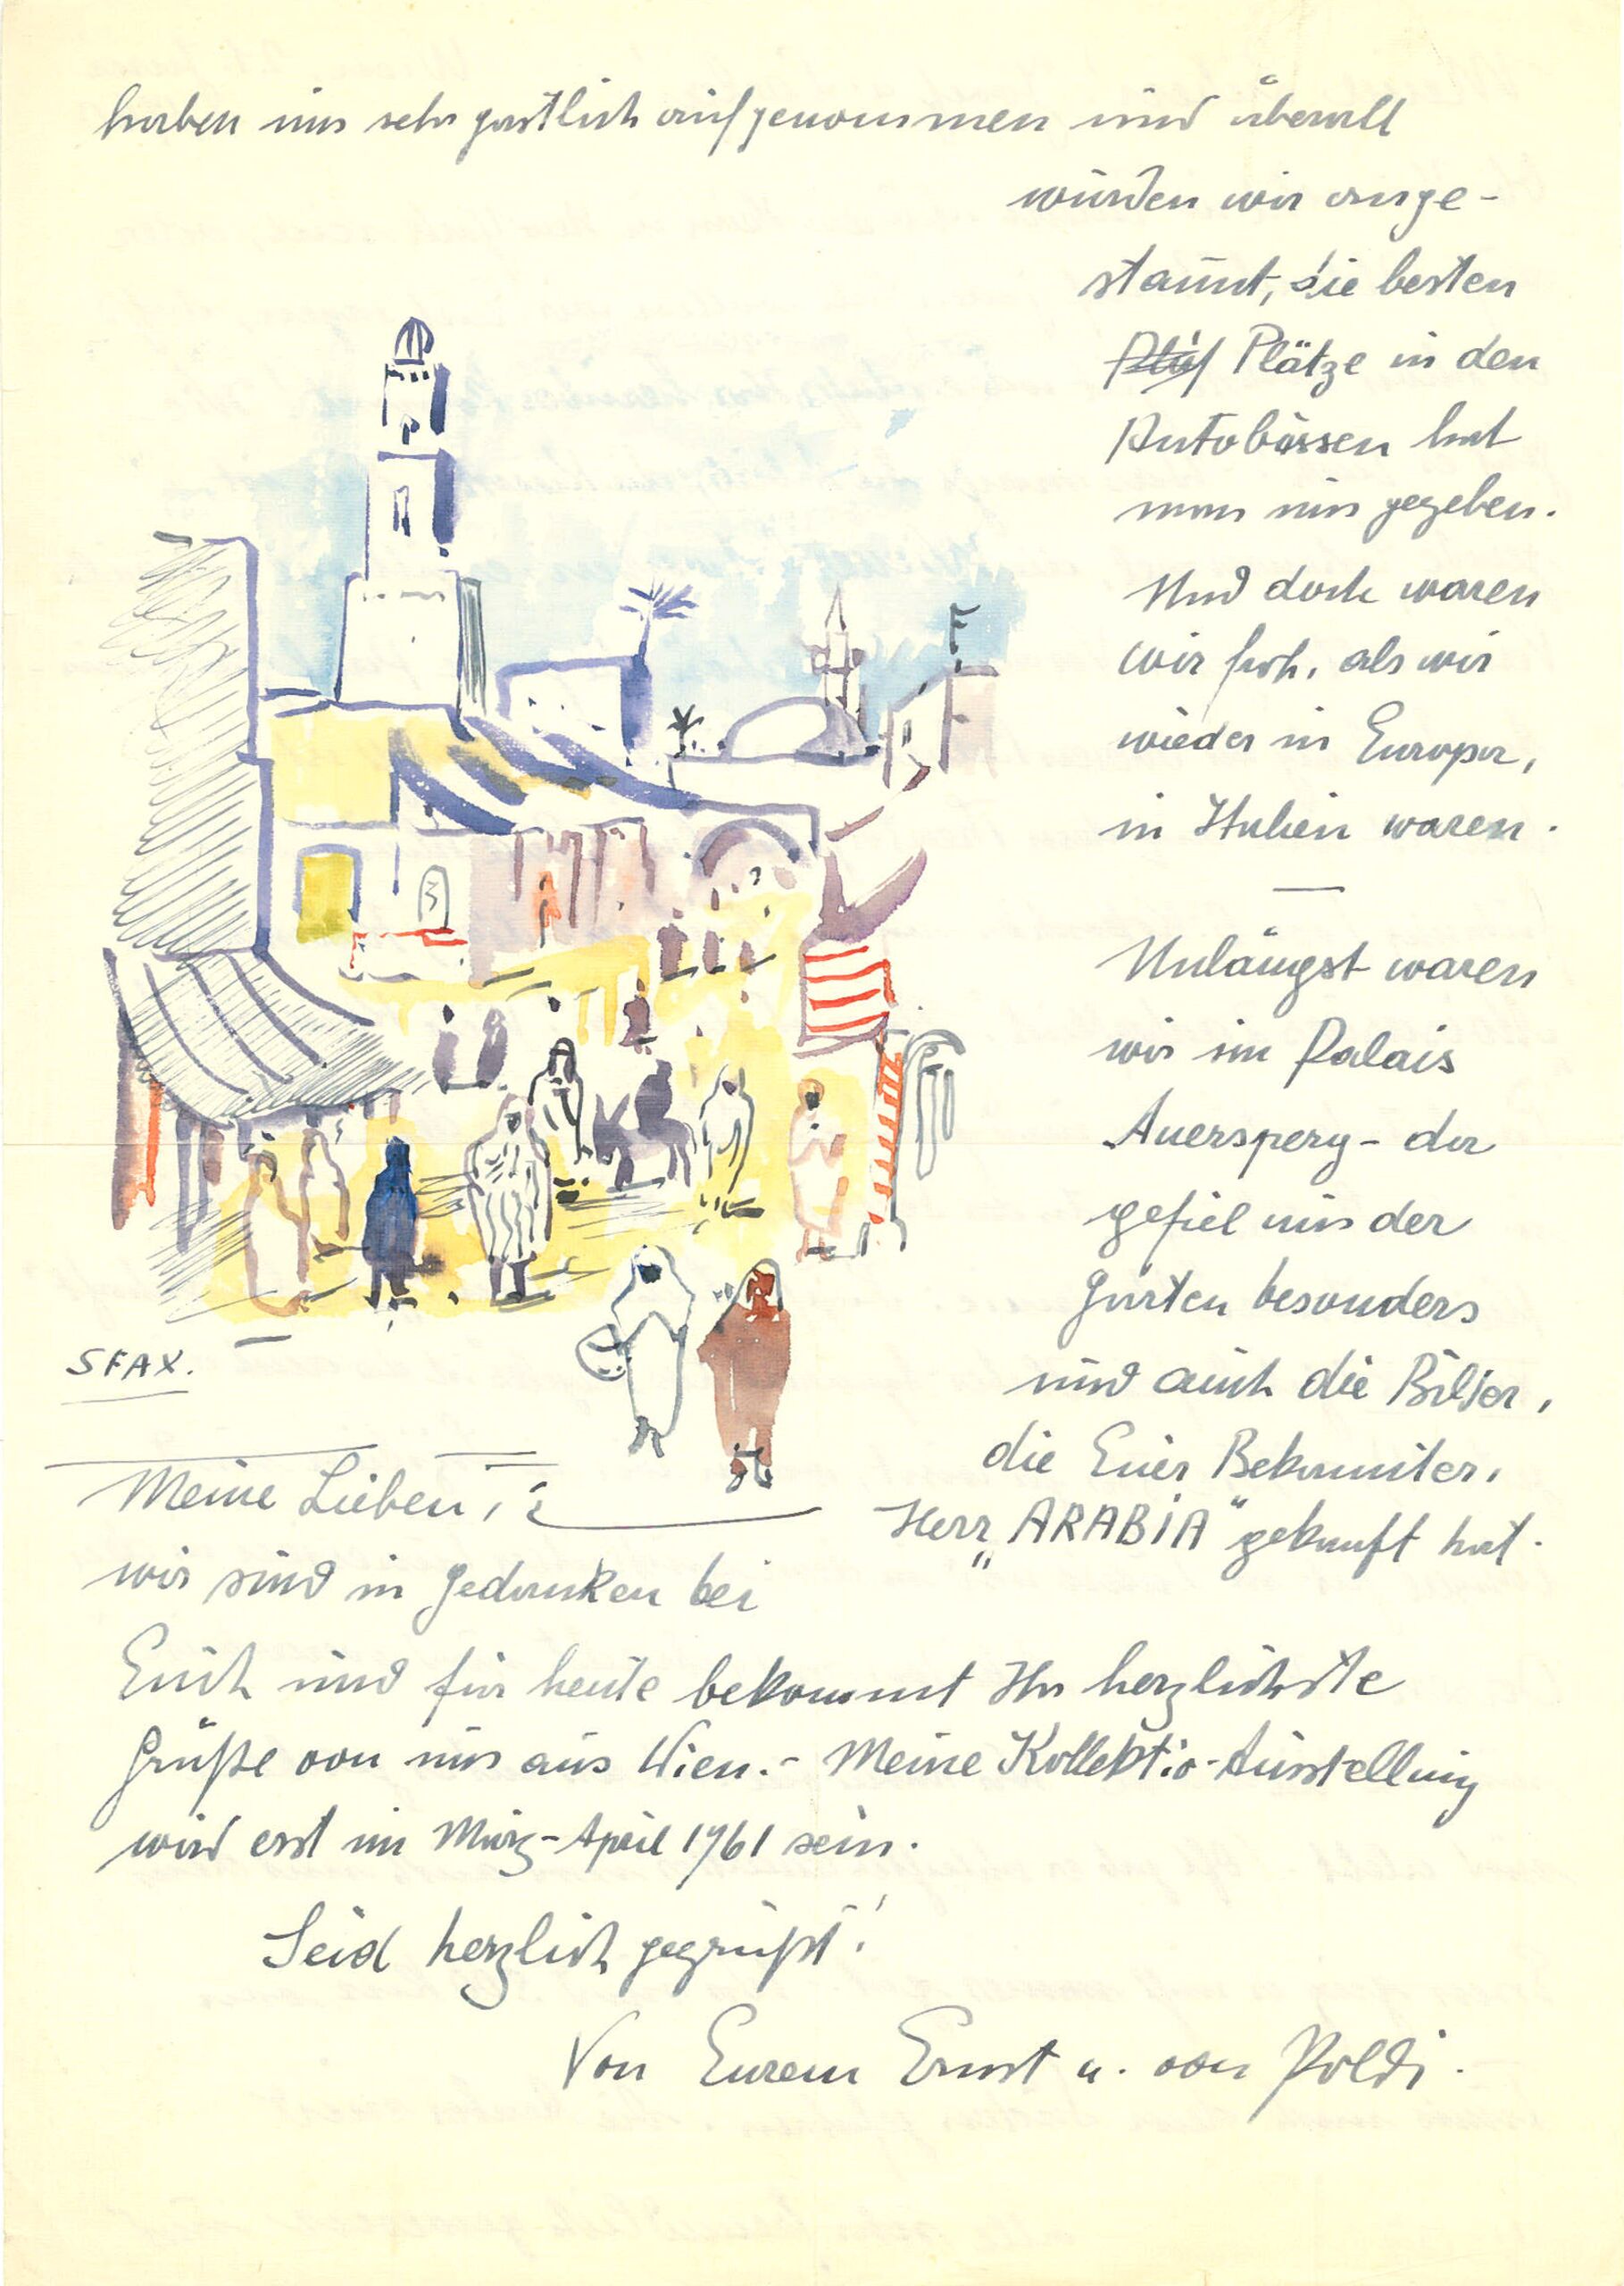 haben uns sehr gastlich aufgenommen und überall
wurden wir ange-
staunt, die besten
Plätze in den
Autobussen hat
man uns gegeben.
Und doch waren
wir froh, als wir
wieder in Europa,
in Italien waren.
Unlängst waren
wir im Palais
Auersperg - da
gefiel uns der
Garten besonders
und auch die Bilder,
die Euer Bekannter,
Herr „ARABIA" gekauft hat.
SFAX.
Meine Lieben,
wir sind in Gedanken bei
Euch und für heute bekommt Ihr herzlichste
Grüße von uns aus Wien.- Meine Kollektiv-Ausstellung
wird erst im März-April 1961 sein.
Seid herzlich gegrüßt!
Von Eurem Ernst u. von Poldi.